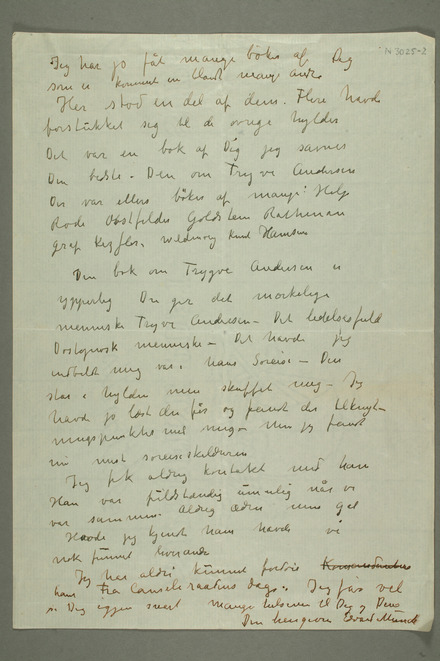 N 3025-2
Jeg har jo fåt mange bøker af Dig
som er kommet en blandt mange andre
Her stod en del af dem. Flere havde
forstukket sig til de øvrige hylder
Det var en bok af Dig jeg savner
Den bedste – Den om Trygve Andersen
Der var ellers bøker af mange: Helge
Rode Obstfelder Goldstein Rathenau
gref Kessler, Knut Hamsun
Den bok om Trygve Andersen er
ypperlig Du gir det mærkelige
menneske Trygve Andersen – Det lidelsesfuld
Dostojevsk menneske – Det havde jeg
indbildt mig var i hans Soreise – Den
står i hylden men skuffet mig – Jeg
havde jo læst den før og fandt da tilknyt-
ningspunkter med mig – Men jeg fandt
nu mest soreiseskildringen
Jeg fik aldrig kontakt med ham
Han var fuldstændig umulig når vi
var sammen. Aldrig ædru men gal
Havde jeg kjendt ham havde vi
nok funnet hverandre
Jeg har aldri kunnet fordøie
ham fra Cancelliraadens dage. Jeg får vel
se Dig igjen snart mange hilsener til Dig og Dine
Din hengivne Edvard Munch